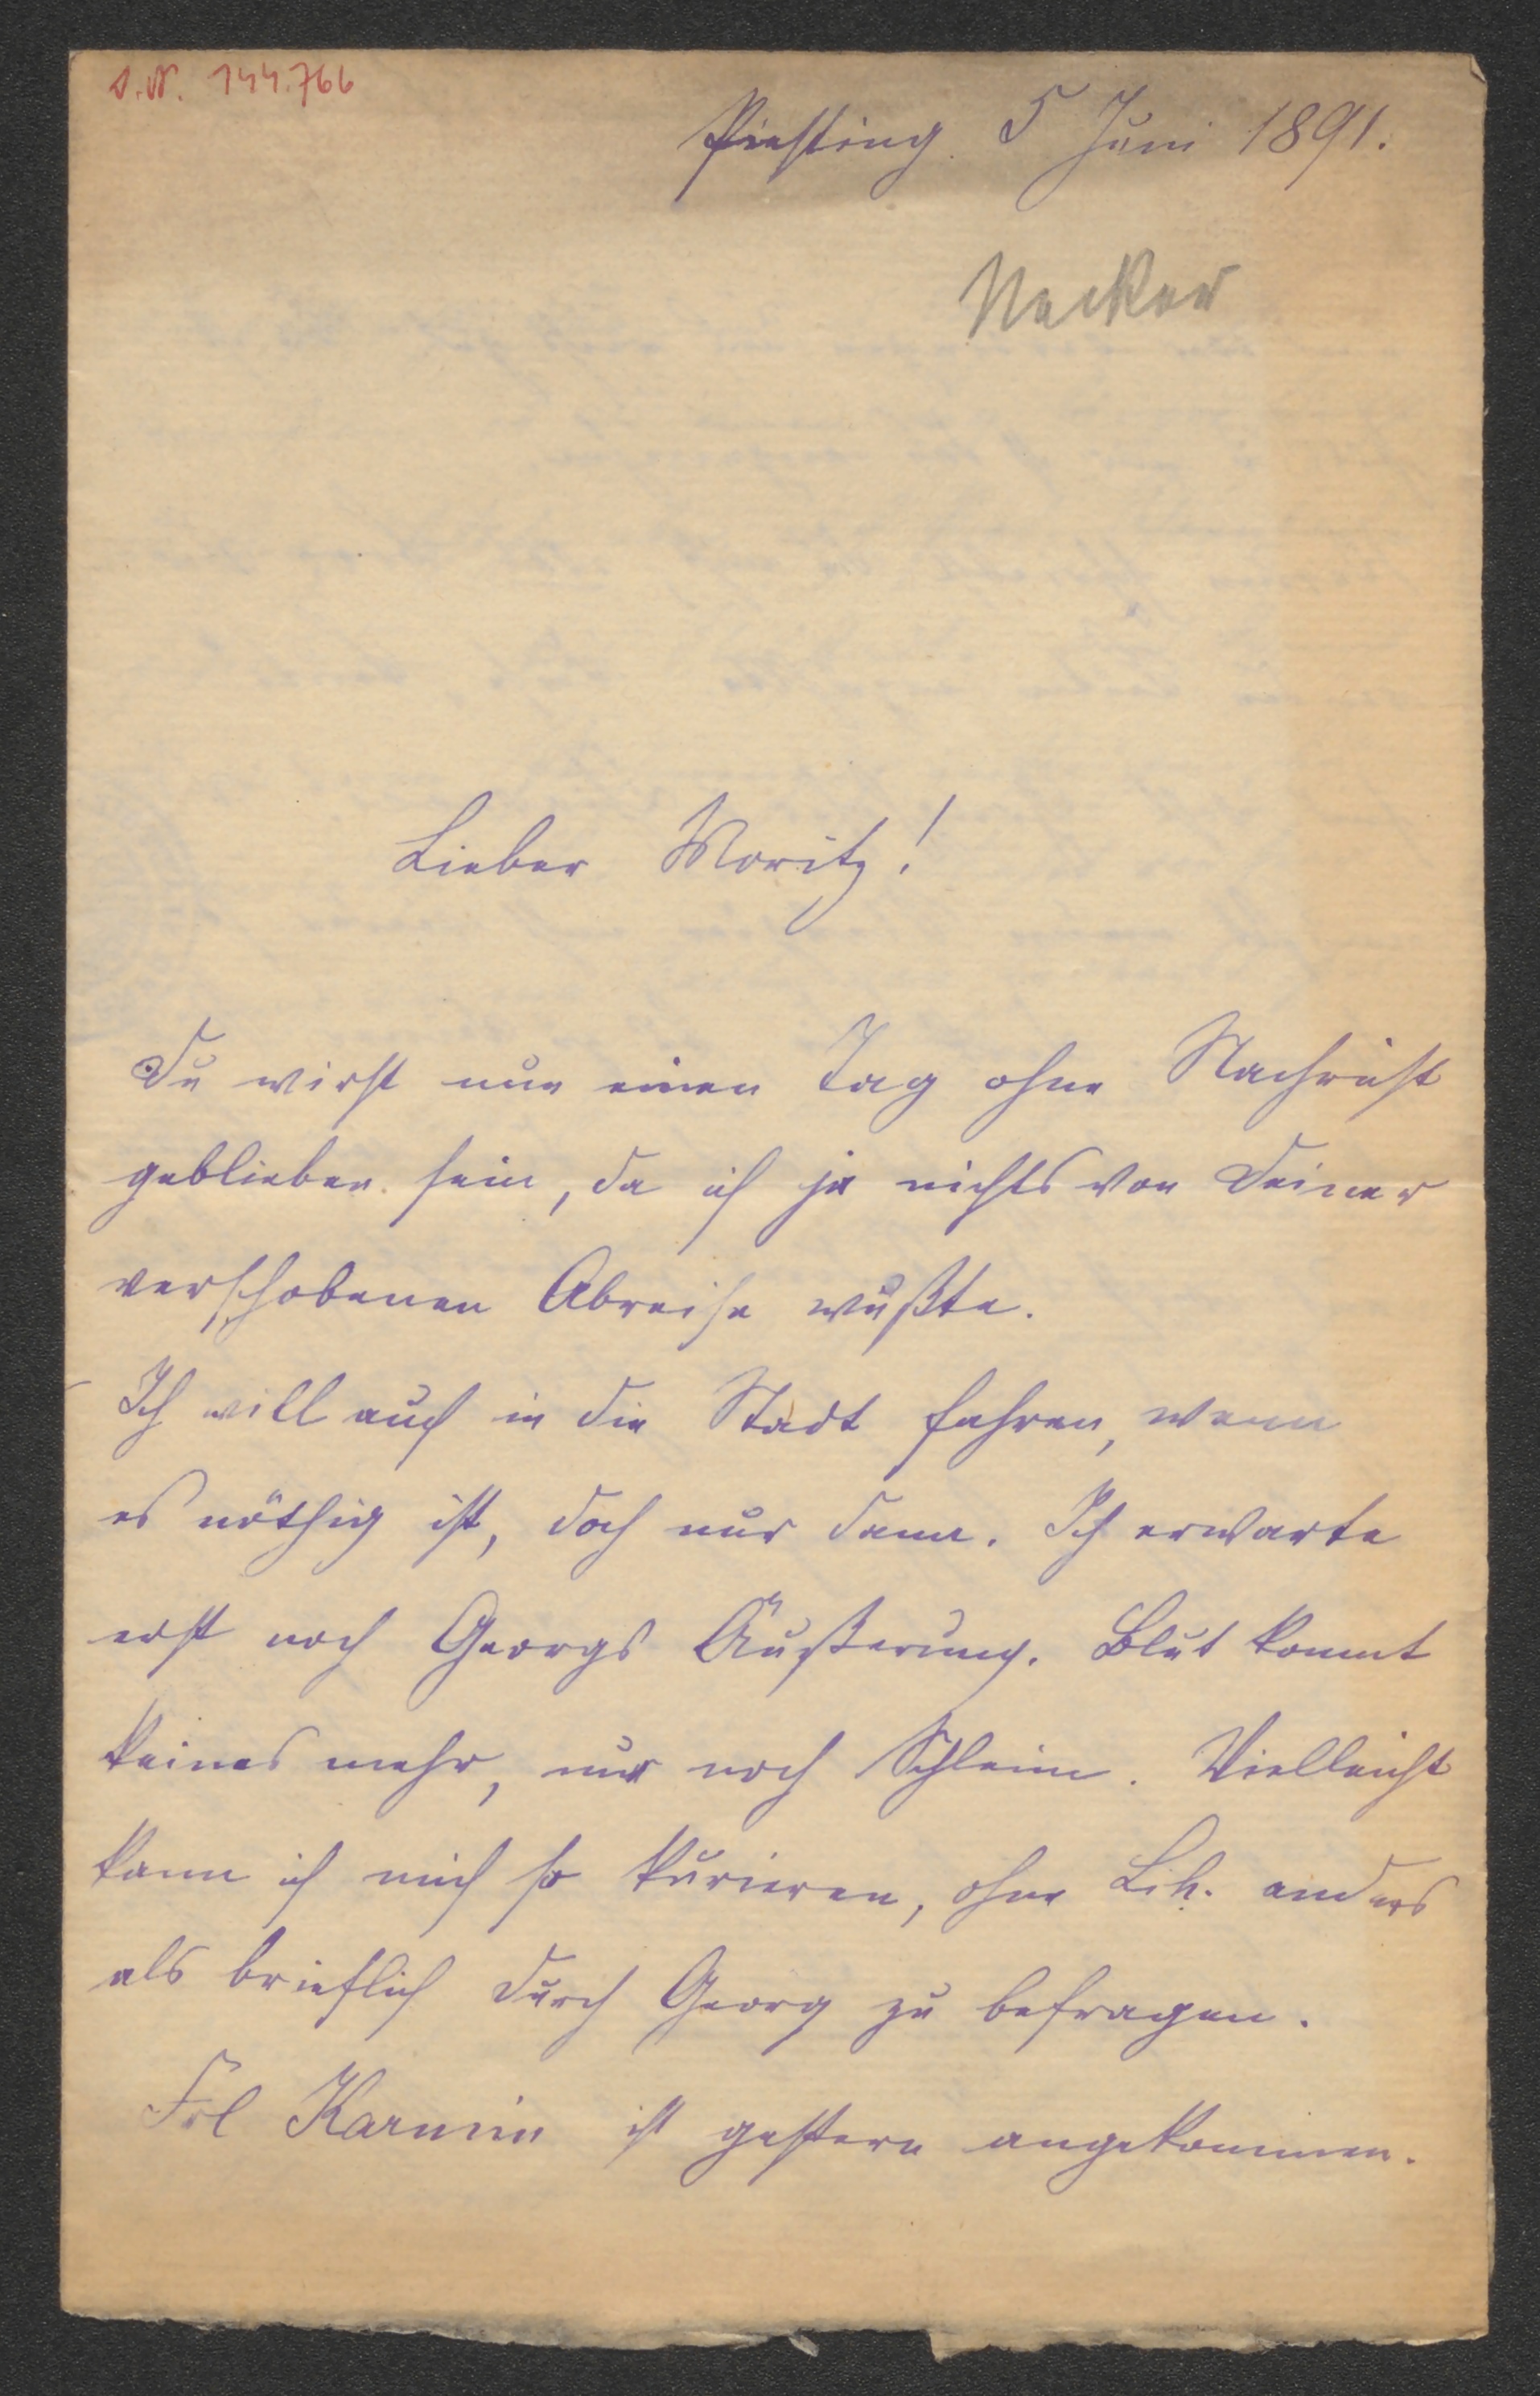 J.N. 144.766
Piesting. 5 Juni 1891.
Necker
Lieber Moritz!
Du wirst nun einen Tag ohne Nachricht
geblieben sein, da ich ja nichts von Deiner
verschobenen Abreise wußte.
Ich will auch in die Stadt fahren, wenn
es nöthig ist, doch nur dann. Ich erwarte
erst noch Georgs Äußerung. Blut kommt
keines mehr, nur noch Schleim. Vielleicht
kann ich mich so kurieren, ohne anders
als brieflich durch Georg zu befragen.
Frl Karmin ist gestern angekommen.